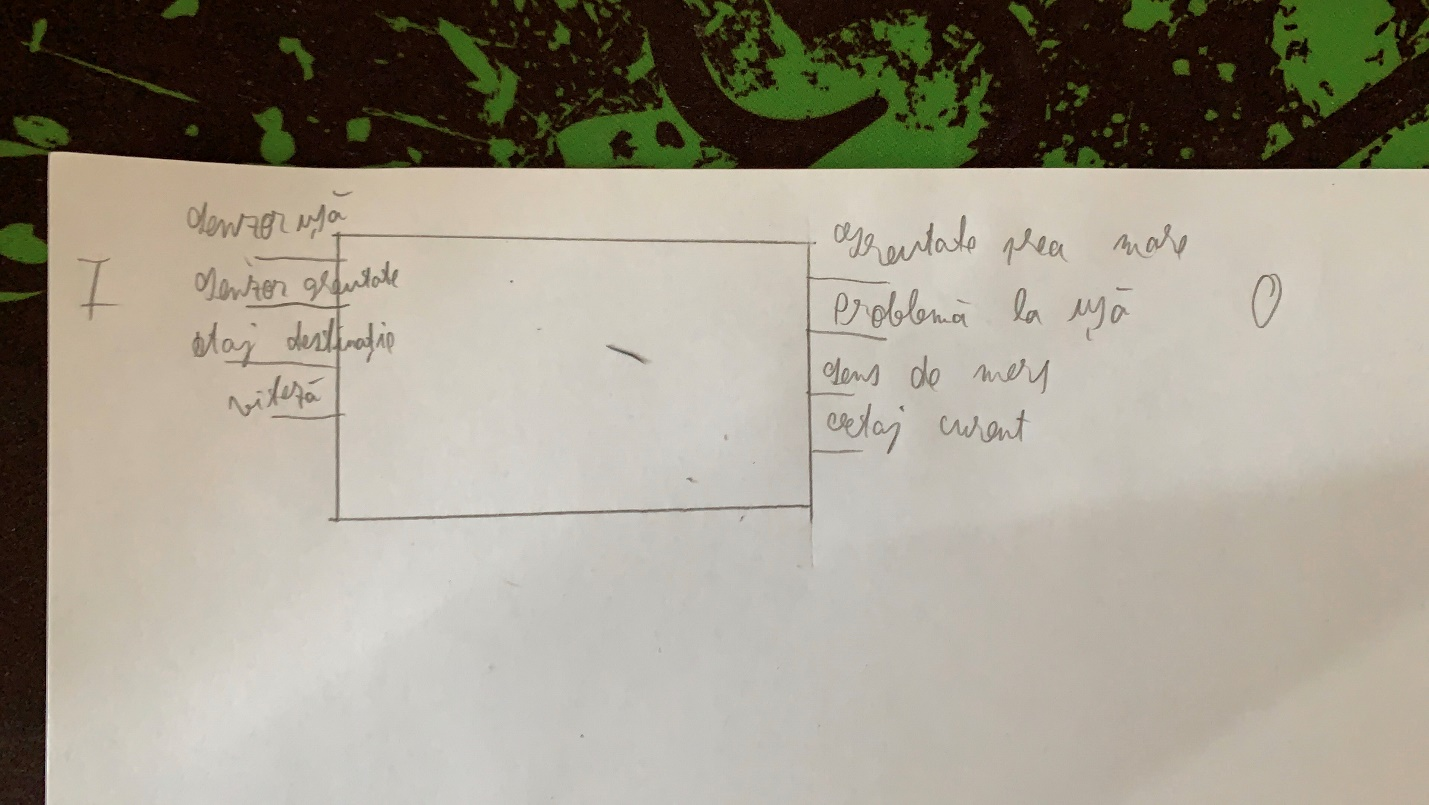 senzor ușă
I
senzor greutate
etaj destinație
viteză
greutate prea mare
problemă la ușă
O
sens de mers
etaj curent